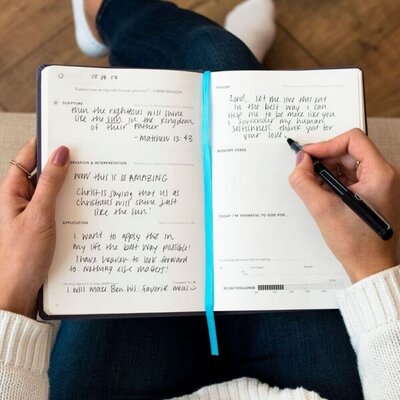 12 04 17
SCRIPTURE
then the righteous will shine
like the sun in the Kingdom
of their Father
- Matthew 13:43
OBSERVATION & INTERPRETATION
WOW THIS IS SO AMAZING
Christ is saying that us as
Christians will shine just
like the sun!
APPLICATION
I want to apply this in
my life the best way possible!
I have heaven to look forward
to. Nothing else matters!
I will make Ben his favorite meal
PRAYER
Lord, let me live this out
in the best way I can
Help me to be more like you
I surrender my human
selfishness. Thank you for
your love.
MEMORY VERSE
TODAY I'M THANKFUL TO GOD FOR...
10 DAY CHALLENGE